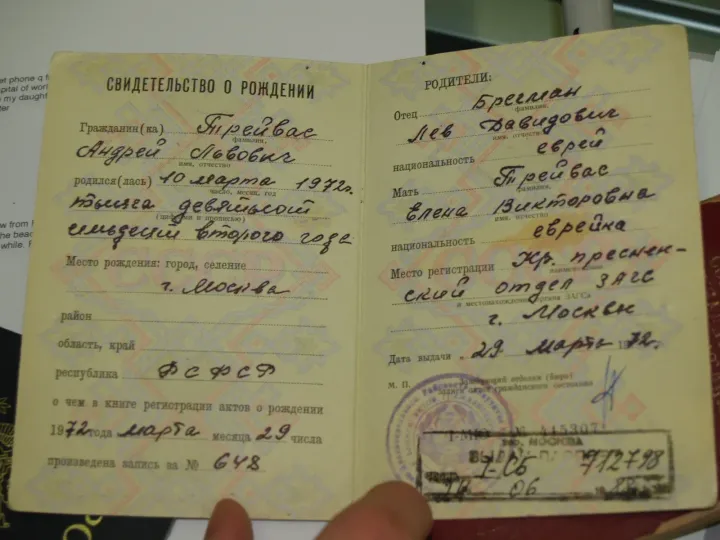 СВИДЕТЕЛЬСТВО О РОЖДЕНИИ
Гражданин(ка) Трейвас
фамилия,
Андрей Львович
имя, отчество
родился(лась) 10 марта 1972г.
число, месяц, год
тысяча девятьсот
(цифрами и прописью)
семьдесят второго года
Место рождения: город, селение
г. Москва
район
область, край
республика РСФСР
о чем в книге регистрации актов о рождении
1972 года марта месяца 29 числа
произведена запись за № 648
РОДИТЕЛИ:
Отец Брегман
фамилия,
Лев Давидович
имя, отчество
национальность еврей
Мать Трейвас
фамилия,
Елена Викторовна
имя, отчество
национальность еврейка
Место регистрации Кр. преснен-
наименование
ский отдел ЗАГС
и местонахождение органа ЗАГСа
г. Москвы
Дата выдачи « 29 марта 1972г.
М. П. Заведующий отделом (бюро)
записи актов гражданского состояния
№ 445307
гор. МОСКВА
I-СБ 712798
06
et phone q f
pital of wor
my daught
ter
w from
the bea
while.